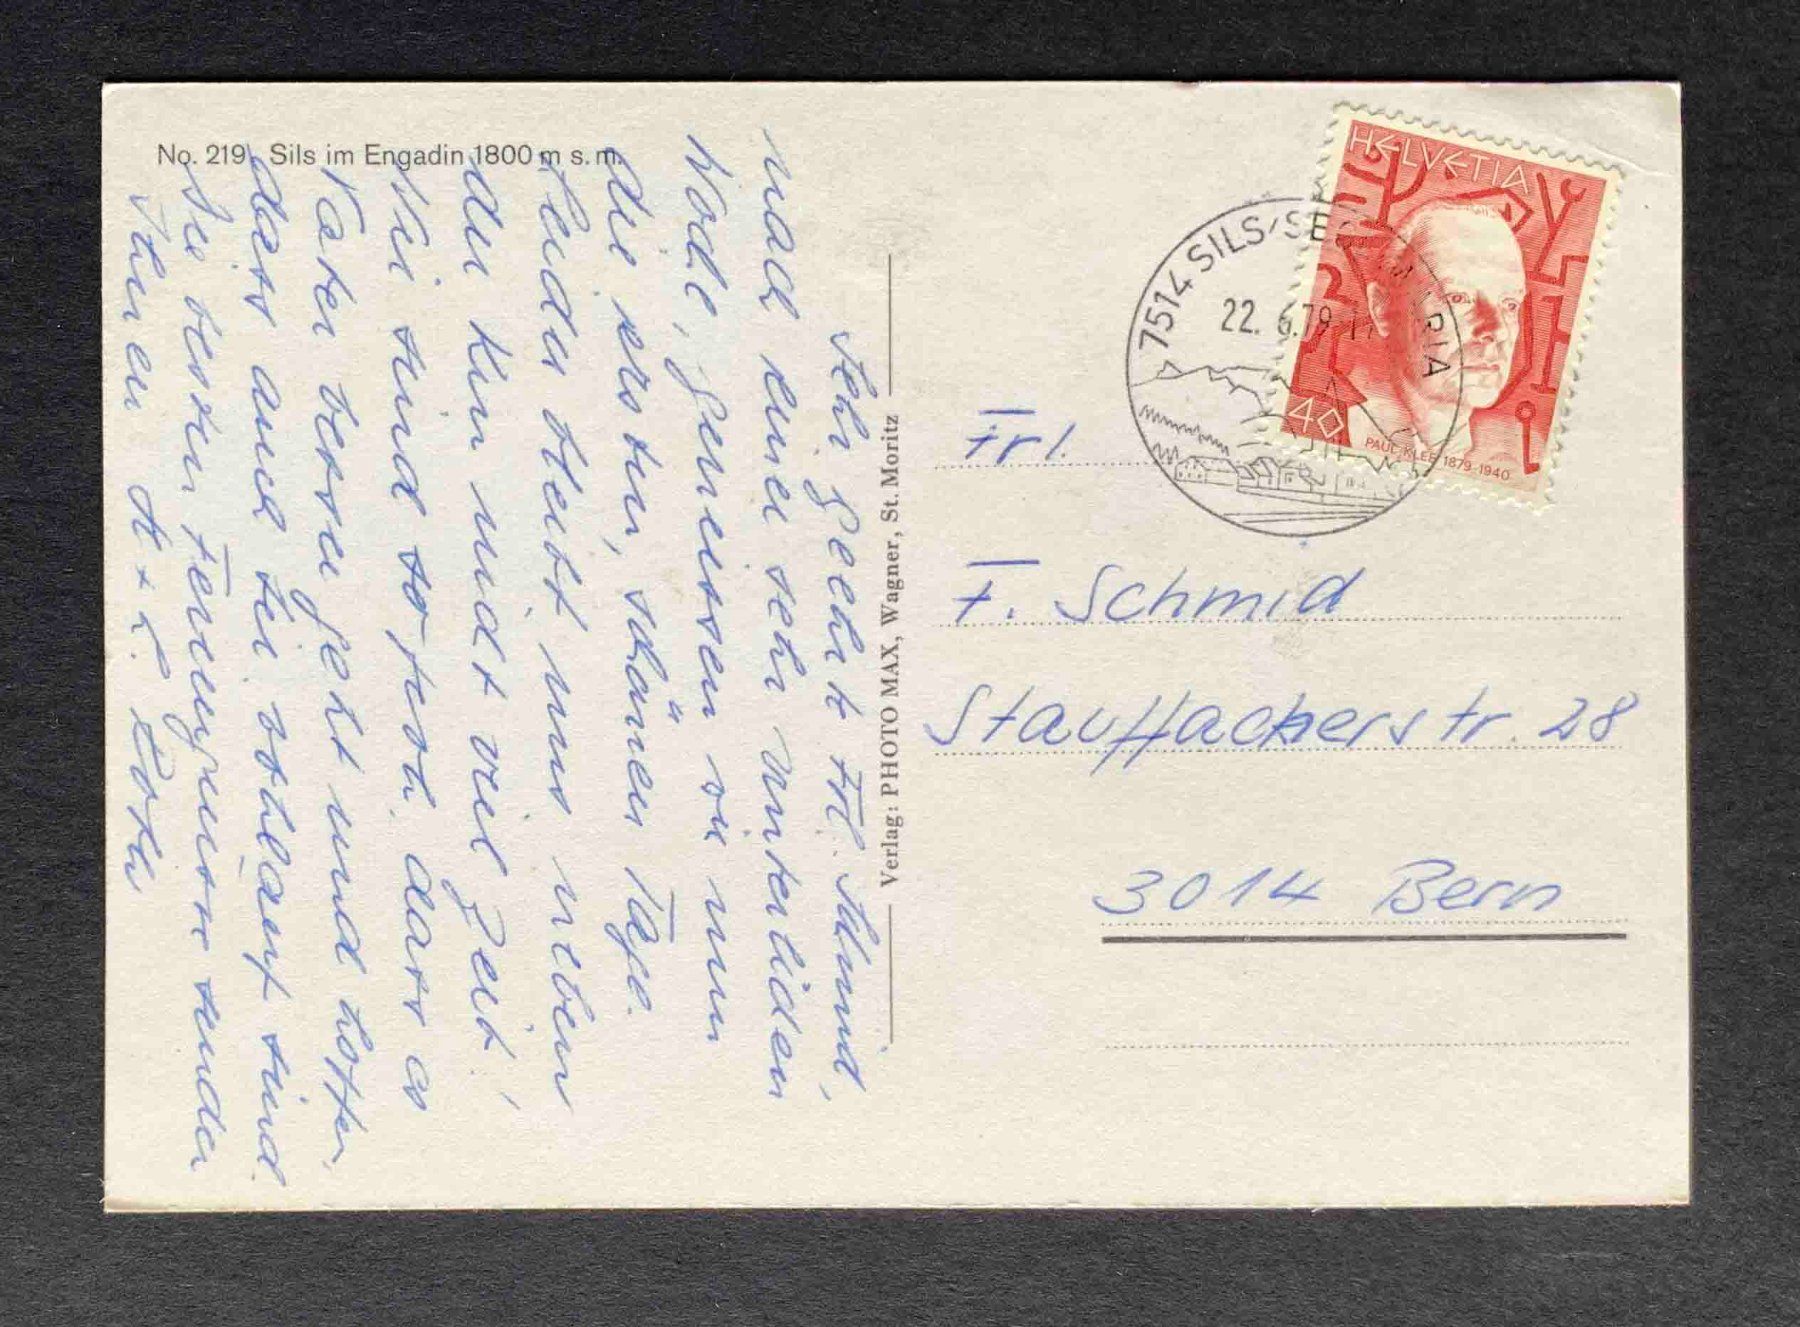 No. 219 Sils im Engadin 1800 m s. m.
Sehr geehrte Frl. Schmid,
nach einer sehr unterliden
Wode, geniessen wir nun
die ersten, schönen Tage.
Leider bleibt uns neben
der Kur nicht viel Zeit,
Wir sind so froh, dass es
Vater besser geht und hoffen
dass auch Sie wohlauf sind.
Die besten Feriengrüsse senden
Ihnen A + L
Verlag: PHOTO MAX, Wagner, St. Moritz
7514 SILS/SEGL MARIA
22. 6.79-17
HELVETIA
40
PAUL KLEE 1879-1940
Frl.
F. Schmid
Stauffacherstr. 28
3014 Bern